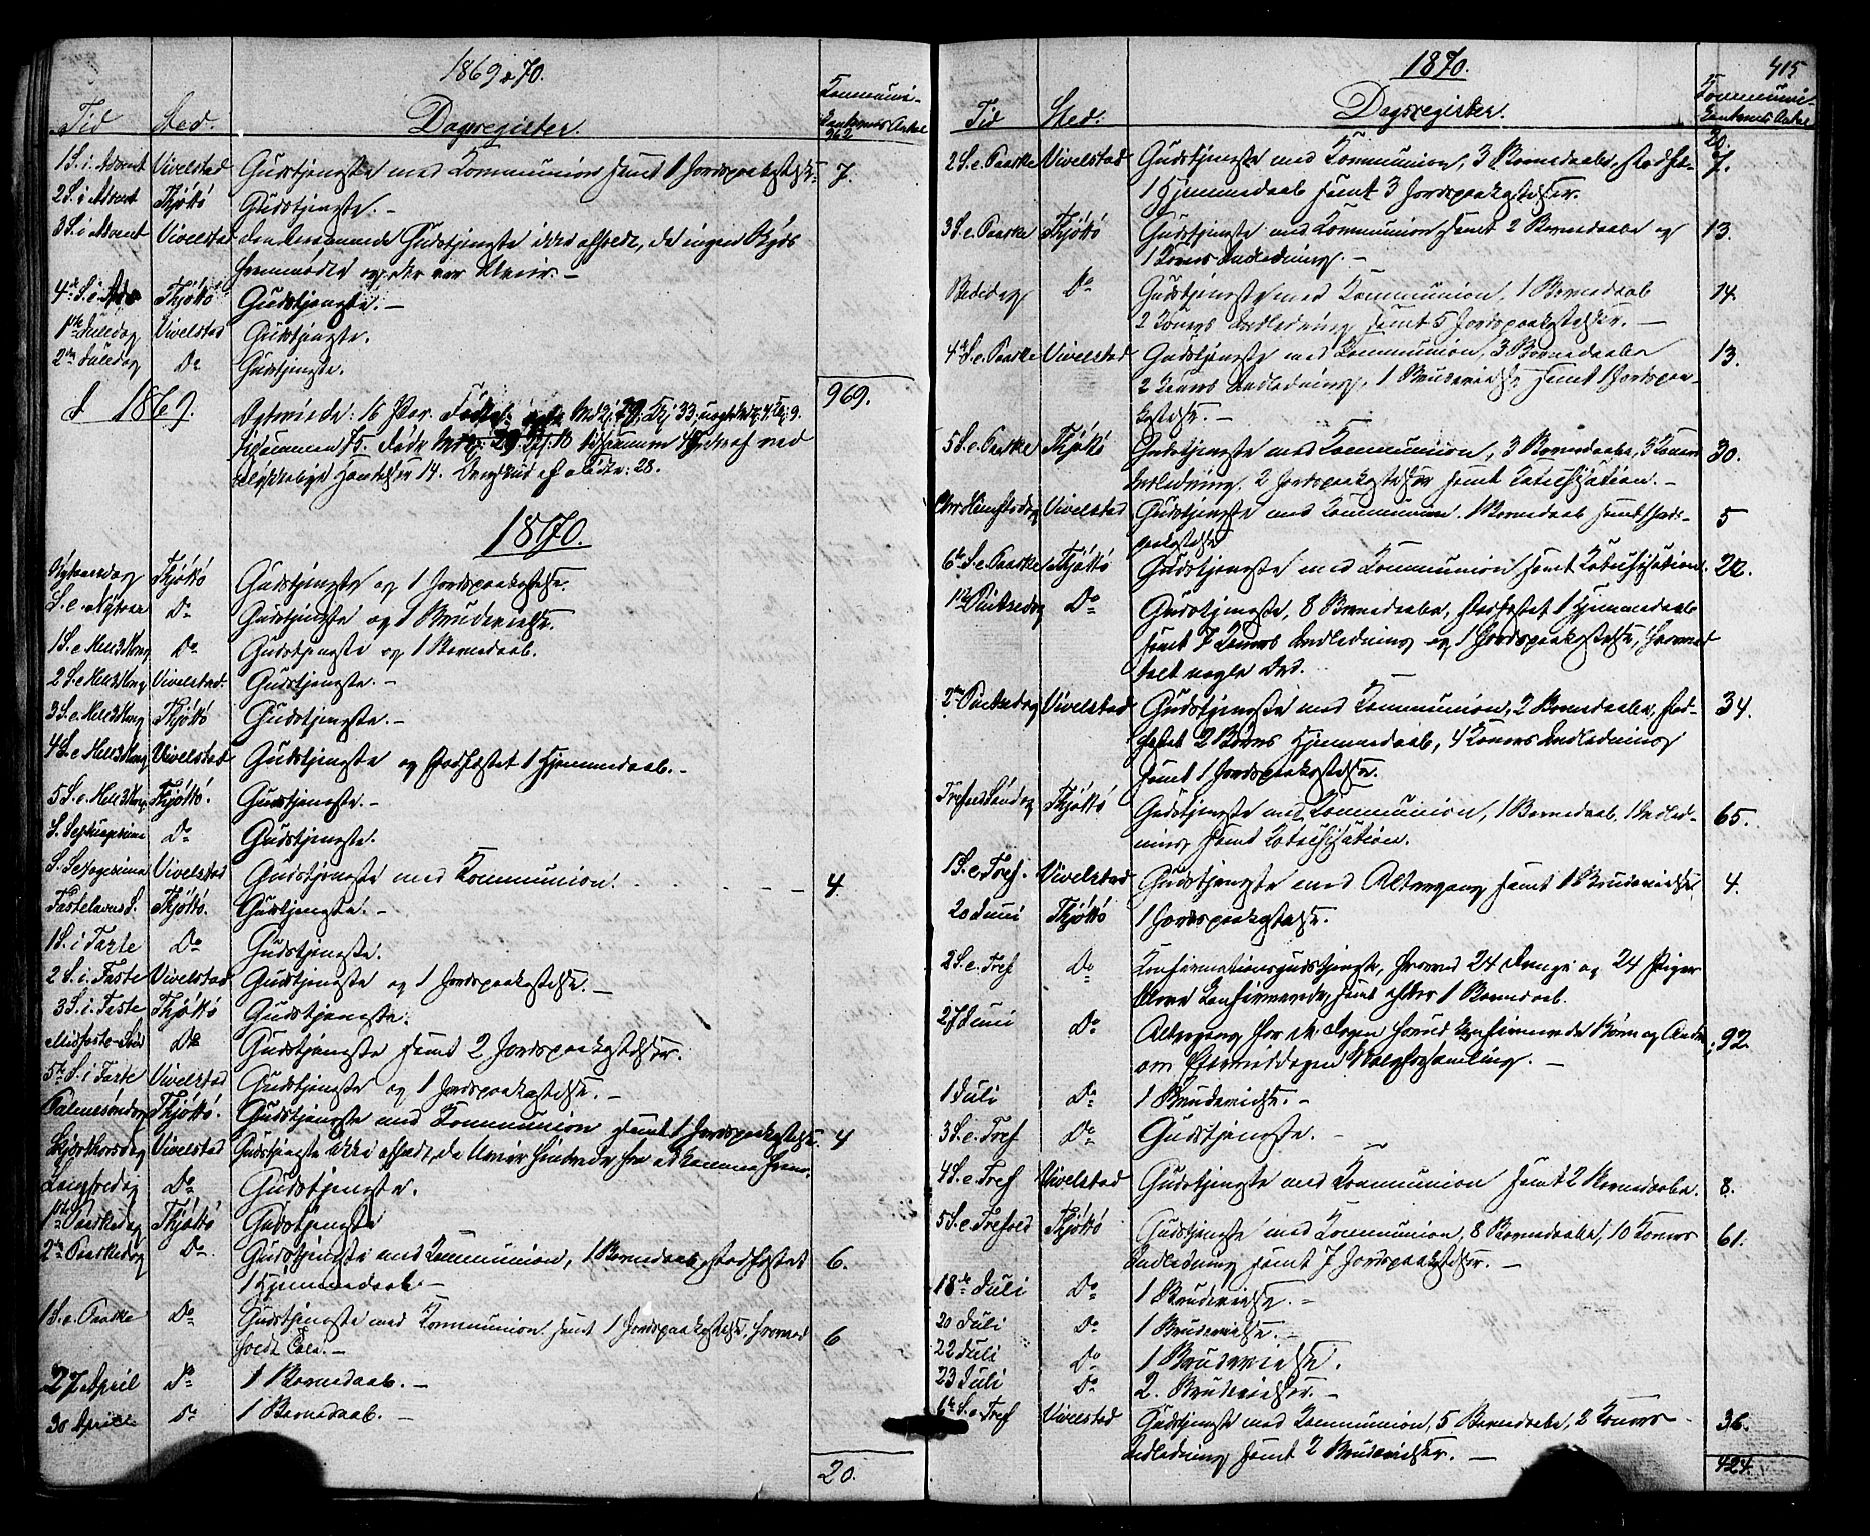 1869 & 70.
Tid Sted. Dagregister. Kommuni-
kanternes Antal
962
1 S. i. Advent Vivelstad Gudstjeneste med Kommunion samt 1 Jordspaakastelse. 7.
2 S. i Advent Thjøttø Gudstjeneste. –
3 S. i Advent Vivelstad Gudstjeneste ikke afholdt, da ingen
fremmødte og der var Uveir. –
4de S. i Adv Thjøttø Gudstjeneste. –
1ste Juledag Vivelstad Gudstjeneste.
2den Juledag Do Gudstjeneste.
I 1869. 969.
16 Par. Fødte 33
tilsammen 75. tilsammen
ulykkelige Hændelser 14. 28.
1870.
Nytaarsdag Thjøttø Gudstjeneste og 1 Jordspaakastelse.
S. e. Nytaar Do Gudstjeneste og 1 Brudevielse.
1 S. e. Hell 3 Kong Do Gudstjeneste og 1 Barnedaab.
2 S. e Hell 3 Kong Vivelstad. Gudstjeneste. –
3 S. e. Hell 3 Kong Thjøttø Gudstjeneste. –
4 S. e. Hell 3 Kong Vivelstad Gudstjeneste og stadfæstet 1 Hjemmedaab. –
5 S. e. Hell 3 Kong Thjøttø. Gudstjeneste. –
S. Septuagesima Do Gudstjeneste.
S. Sexagesima Vivelstad Gudstjeneste med Kommunion. 4.
Fastelavns S. Thjøttø. Gudstjeneste. –
1 S. i Faste Do Gudstjeneste.
2 S. i. Faste Vivelstad Gudstjeneste og 1 Jordspaakastelse. –
3 S. i. Faste Thjøttø Gudstjeneste.
Midfaste-Sønd Do Gudstjeneste samt 2 Jordspaakastelser.
5te S. i Faste Vivelstad Gudstjeneste og 1 Jordspaakastelse. –
Palmesøndag Thjøttø. Gudstjeneste med Kommunion samt 1 Jordspaakastelse 4
Skjærthorsdag Vivelstad Gudstjeneste ikke afholdt, da Uveir hindrede fra at komme frem.
Langfredag Do Gudstjeneste.
1ste Paaskedag Thjøttø Gudstjeneste
2den Paaskedag Do. Gudstjeneste med Kommunion, 1 Barnedaab, stadfæstet 6.
1 Hjemmedaab –
1 S. e. Paaske Do Gudstjeneste med Kommunion samt 1 Jordspaakastelse, hvorved 6
holdt Tale. –
27 April Do 1 Barnedaab. –
30 April Do 1 Barnedaab. –
20.
1870. 415
Tid Sted. Dagsregister. Kommuni-
kanternes Antal
20.
2 S. e. Paaske Vivelstad Gudstjeneste med Kommunion, 3 Barnedaabe, stadfæ- 7.
1 Hjemmedaab samt 3 Jordspaakastelser.
3 S. e. Paaske Thjøttø Gudstjeneste med Kommunion samt 2 Barnedaabe og 13.
1 Kones Indledning. –
Bededag Do Gudstjeneste med Kommunion, 1 Barnedaab 14.
2 Koners Indledning samt 5 Jordspaakastelser. –
4de S. e. Paaske Vivelstad Gudstjeneste med Kommunion, 3 Barnedaabe 13.
2 Koners Indledning, 1 Brudevielse samt 1 Jordspaa-
kastelse. –
5 S. e. Paaske Thjøttø Gudstjeneste med Kommunion, 3 Barnedaabe, 3 Koners 30.
Indledning, 2 Jordspaakastelser samt Katechisation. –
Chr Himfartsdag Vivelstad Gudstjeneste med Kommunion. 1 Barnedaab samt Jords- 5
paakastelse
6te S. e. Paaske Thjøttø Gudstjeneste med Kommunion samt Katechisation. 22.
1ste Pintsedag Do Gudstjeneste, 8 Barnedaabe, stadfæstet 1 Hjemmedaab
samt 7 Koners Indledning og 1 Jordspaakastelse, hvorved
talt nogle Ord.
2den Pintsedag Vivelstad Gudstjeneste med Kommunion, 2 Barnedaabe, stad- 34.
fæstet 2 Børns Hjemmedaab, 4 Koners Indledning
samt 1 Jordspaakastelse.
Trefold Søndag Thjøttø Gudstjeneste med Kommunion, 1 Barnedaab, 1 Indled- 65.
ning samt Katechisation.
1 S. e. Tref. Vivelstad Gudstjeneste med Altergang samt 1 Brudevielse 4.
20 Juni Thjøttø 1 Jordspaakastelse.
2 S. e. Tref Do Konfirmationsgudstjeneste, hvorved 24 Drenge og 24 Piger
bleve konfirmerede, samt efter 1 Barnedaab.
27 Juni Do Altergang for de Dagen forud konfirmerede Børn og Andre; 92
om Eftermiddagen Valgforsamling. –
1 Juli Do 1 Brudevielse. –
3 S. e. Tref Do Gudstjeneste. –
4 S. e. Tref Vivelstad Gudstjeneste med Kommunion samt 2 Barnedaabe. 8.
5 S. e. Trefold Thjøttø Gudstjeneste med Kommunion, 8 Barnedaabe, 10 Koners 61.
Indledning samt 7 Jordspaakastelser. –
18de Juli Do 1 Brudevielse. –
20 Juli Do 1 Brudevielse. –
22 Juli Do 1 Brudevielse.
23 Juli Do 2. Brudevielser. –
6te S. e Tref Vivelstad Gudstjeneste med Kommunion, 5 Barnedaabe, 2 Koners 36.
Indledning samt 2 Brudevielser. –
424